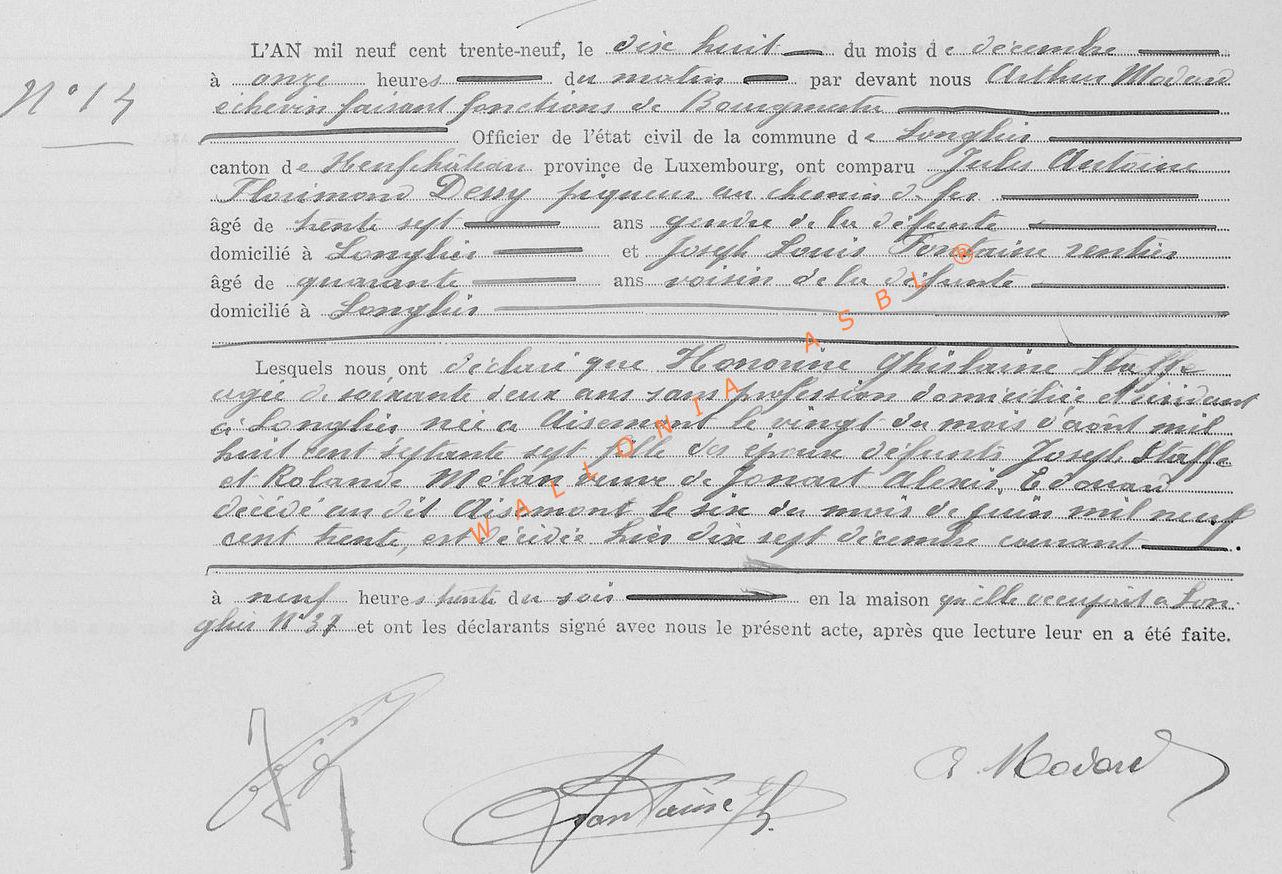 L'AN mil neuf cent trente-neuf, le dix huit du mois de décembre
à onze heures du matin par devant nous Arthur Modard
N° 14
échevin faisant fonctions de Bourgmestre
Officier de l'état civil de la commune de Longlier
canton de Neufchâteau province de Luxembourg, ont comparu Jules Antoine
Florimond Dessy piqueur au chemin de fer
âgé de trente sept ans gendre de la défunte
domicilié à Longlier et Joseph Louis Fontaine rentier
âgé de quarante ans voisin de la défunte
domicilié à Longlier
Lesquels nous ont déclaré que Honorine Ghislaine Staffe
agée de soixante deux ans sans profession domiciliée et résidant
à Longlier née a Aisemont le vingt du mois d'août mil
huit cent septante sept fille des époux défunts Joseph Staffe
et Rolande Mélan veuve de Jonart Alexis Edouard
décédé au dit Aisemont le six du mois de juin mil neuf
cent trente, est décédée hier dix sept décembre courant
à neuf heures trente du soir en la maison qu'elle occupait a Lon-
glier N° 37 et ont les déclarants signé avec nous le présent acte, après que lecture leur en a été faite.
Fontaine JL.
A Modard
WALLONIA ASBL ®